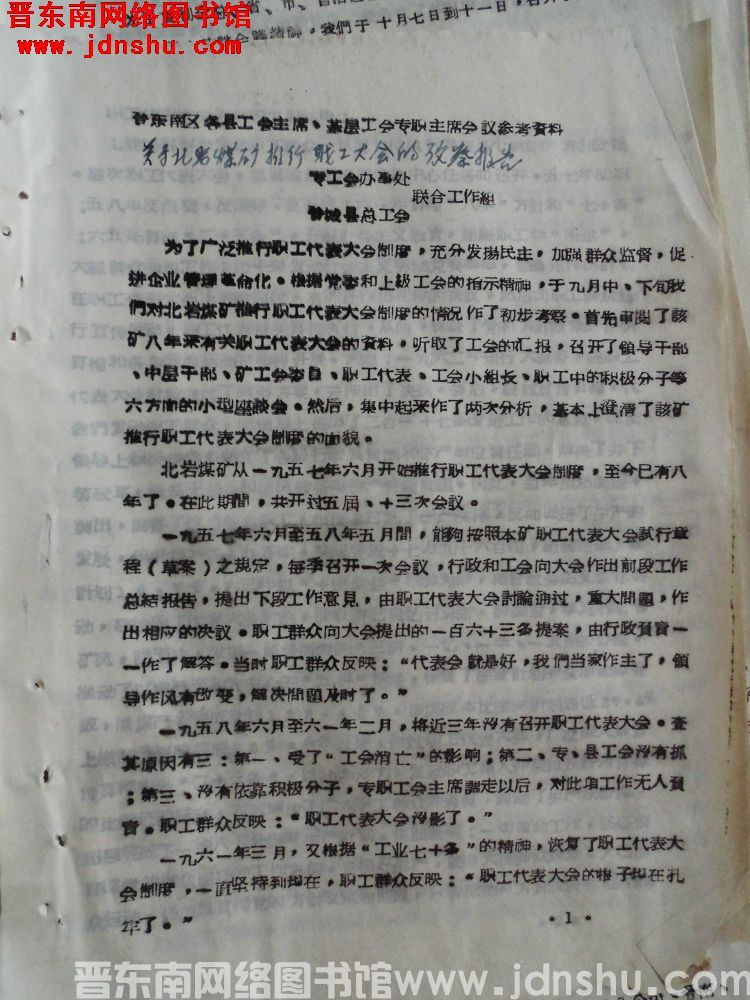 晋东南网络图书馆
www.jdnshu.com
省、市、自治区
我們于十月七日到十一日，召开
晋东南区各县工会主席、基层工会专职主席会议参考資料
关于北岩煤矿推行职工大会的攷察报告
专工会办事处
联合工作組
晉城县总工会
为了广泛推行职工代表大会制度，充分发揚民主，加强群众监督，促
进企业管理革命化。根据党委和上級工会的指示精神，于九月中、下旬我
們对北岩煤矿推行职工代表大会制度的情况作了初步考察。首先审閱了該
矿八年来有关职工代表大会的資料，听取了工会的汇报，召开了領导干部
、中层干部、矿工会委員、职工代表、工会小組长、职工中的积极分子等
六方面的小型座談会。然后，集中起来作了两次分析，基本上澄清了該矿
推行职工代表大会制度的面貌。
北岩煤矿从一九五七年六月开始推行职工代表大会制度，至今已有八
年了。在此期間，共开过五届、十三次会议。
一九五七年六月至五八年五月間，能夠按照本矿职工代表大会試行章
程（草案）之規定，每季召开一次会議，行政和工会向大会作出前段工作
总結报告，提出下段工作意見，由职工代表大会討論通过，重大問題，作
出相应的决议。职工群众向大会提出的一百六十三条提案，由行政負責一
一作了解答。当时职工群众反映：“代表会就是好，我們当家作主了，領
导作风有改变，解决問題及时了。”
一九五八年六月至六一年二月，将近三年沒有召开职工代表大会。查
其原因有三：第一、受了“工会消亡”的影响；第二、专、县工会沒有抓
；第三、沒有依靠积极分子，专职工会主席調走以后，对此項工作无人負
責。职工群众反映：“职工代表大会沒影了。”
一九六一年三月，又根据“工业七十条”的精神，恢复了职工代表大
会制度，一直坚持到現在，职工群众反映：“职工代表大会的根子現在扎
牢了。”
·1·
晋东南网络图书馆www.jdnshu.com